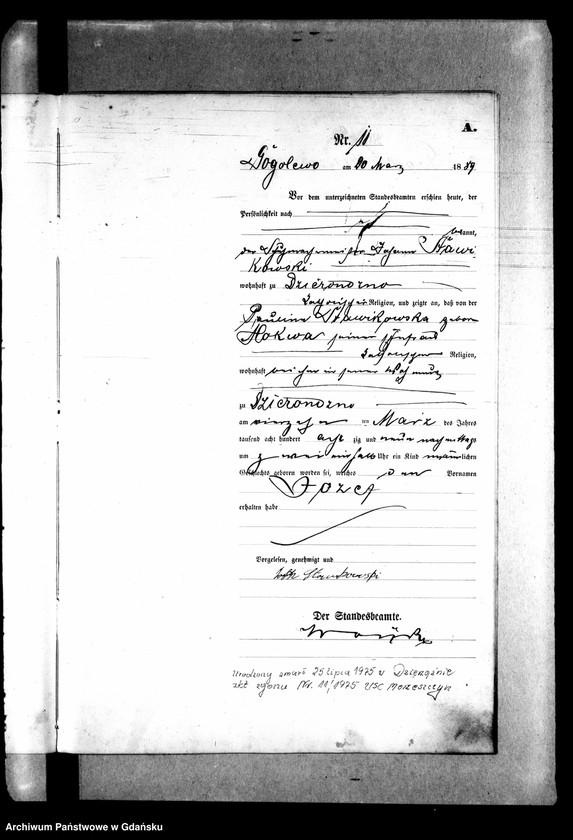 A.
Nr. 11
Gogolewo am 20 März 1889
Vor dem unterzeichneten Standesbeamten erschien heute, der
Persönlichkeit nach
bekannt,
der Johann
kowski
wohnhaft zu Dzierondzno
katholischer Religion, und zeigte an, daß von der
Pauline Slawikowska geborne
Mokwa seiner Ehefrau
katholischer Religion,
wohnhaft bei ihm in seiner Wohnung
zu Dzierondzno
am vierzehn ten März des Jahres
tausend acht hundert acht zig und neun nachmittags
um zwei einhalb Uhr ein Kind männlichen
Geschlechts geboren worden sei, welches den Vornamen
Józef
erhalten habe
Vorgelesen, genehmigt und
Der Standesbeamte.
Urodzony zmarł 25 lipca 1975 w Dzierżążnie
akt zgonu Nr. 11/1975 USC Morzeszczyn
Archiwum Państwowe w Gdańsku